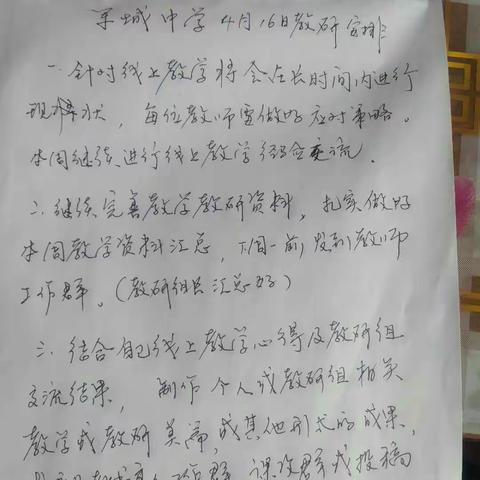 羊城中学4月16日教研安排
一.针对线上教学将会在长时间内进行
现状,每位教师要做好应对策略。
本周继续进行线上教学经验交流.
二.继续完善教学教研资料,扎实做好
本周教学资料汇总,下周一前发到教师
工作群。(教研组长汇总好)
三.结合自己线上教学心得及教研组
交流结果,制作个人或教研组相关
教学或教研美篇,或其他形式的成果,
群,课改群或投稿